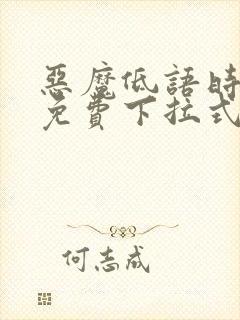 惡魔低語時
免費下拉式
何志成